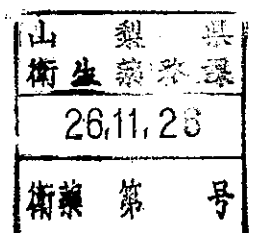 山梨県
衛生薬務課
26.11.28
衛薬第 号